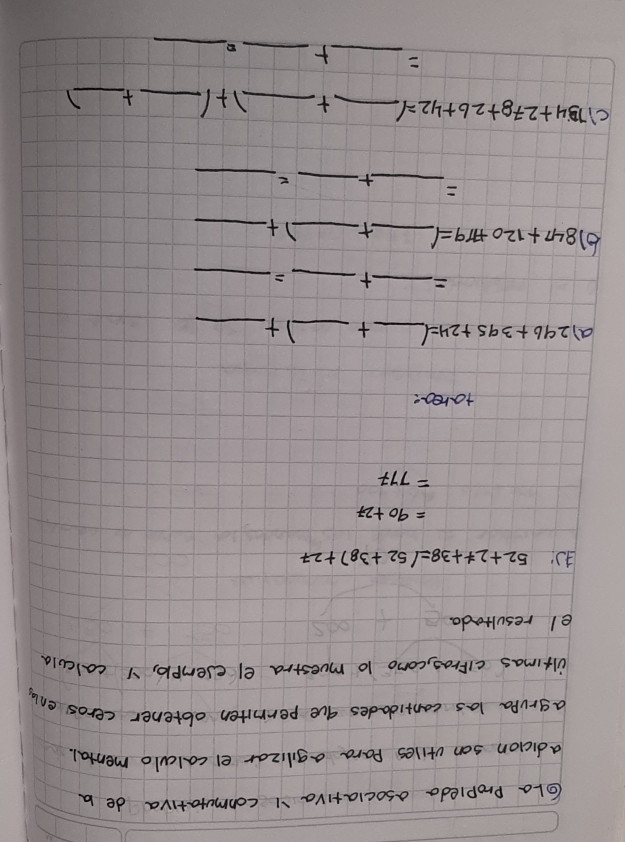 6 La Propieda asociativa Y conmutativa de la
adicion son utiles Para agilizar el calculo mental.
agrupa las cantidades que permiten obtener ceros en las
últimas cifras, como lo muestra el ejemplo, Y calcula
el resultado
52+27+38=(52+38)+27
= 90+27
= 117
tarea:
a) 296+395+24=(____+____)+____
=____+____=____
b) 847+120+ =(____+____)+____
=____+____=____
c) 134+278+26+42=(____+____)+(____+____)
=____+____=____